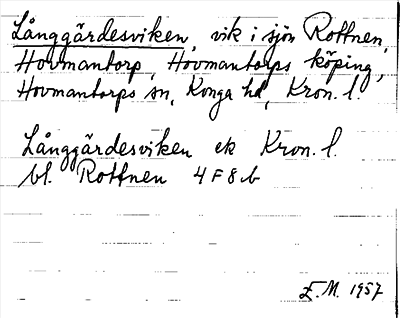 Långgärdesviken, vik i sjön Rottnen,
Hovmantorp, Hovmantorps köping,
Hovmantorps sn, Konga hd, Kron. l.
Långgärdesviken ek Kron. l.
bl. Rottnen 4 F 8 b
E.M. 1957